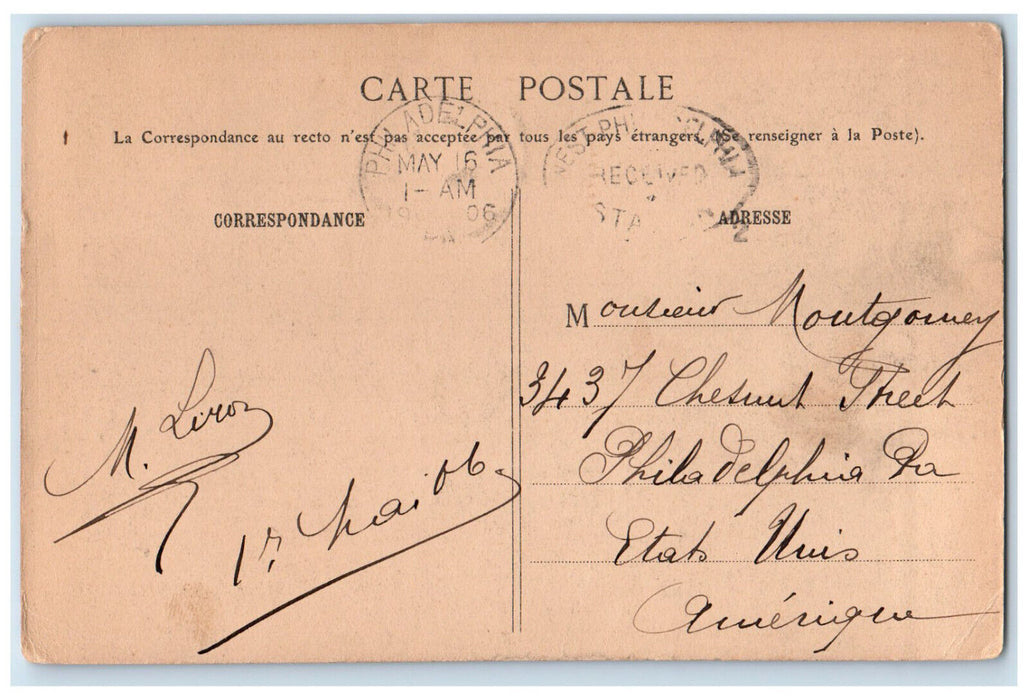 CARTE POSTALE
La Correspondance au recto n'est pas acceptée par tous les pays étrangers. (Se renseigner à la Poste).
PHILADELPHIA
MAY 16
1- AM
06
WEST PHILADELPHIA
RECEIVED
CORRESPONDANCE
ADRESSE
Monsieur Montgomery
3437 Chesnut Street
Philadelphia Pa
Etats Unis
Amérique
M.
1er Mai 06